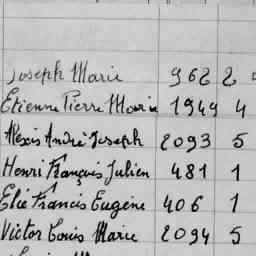 Joseph Marie 962 2
Etienne Pierre Marie 1949 4
Alexis André Joseph 2093 5
Henri François Julien 481 1
Elie Francis Eugène 406 1
Victor Louis Marie 2094 5